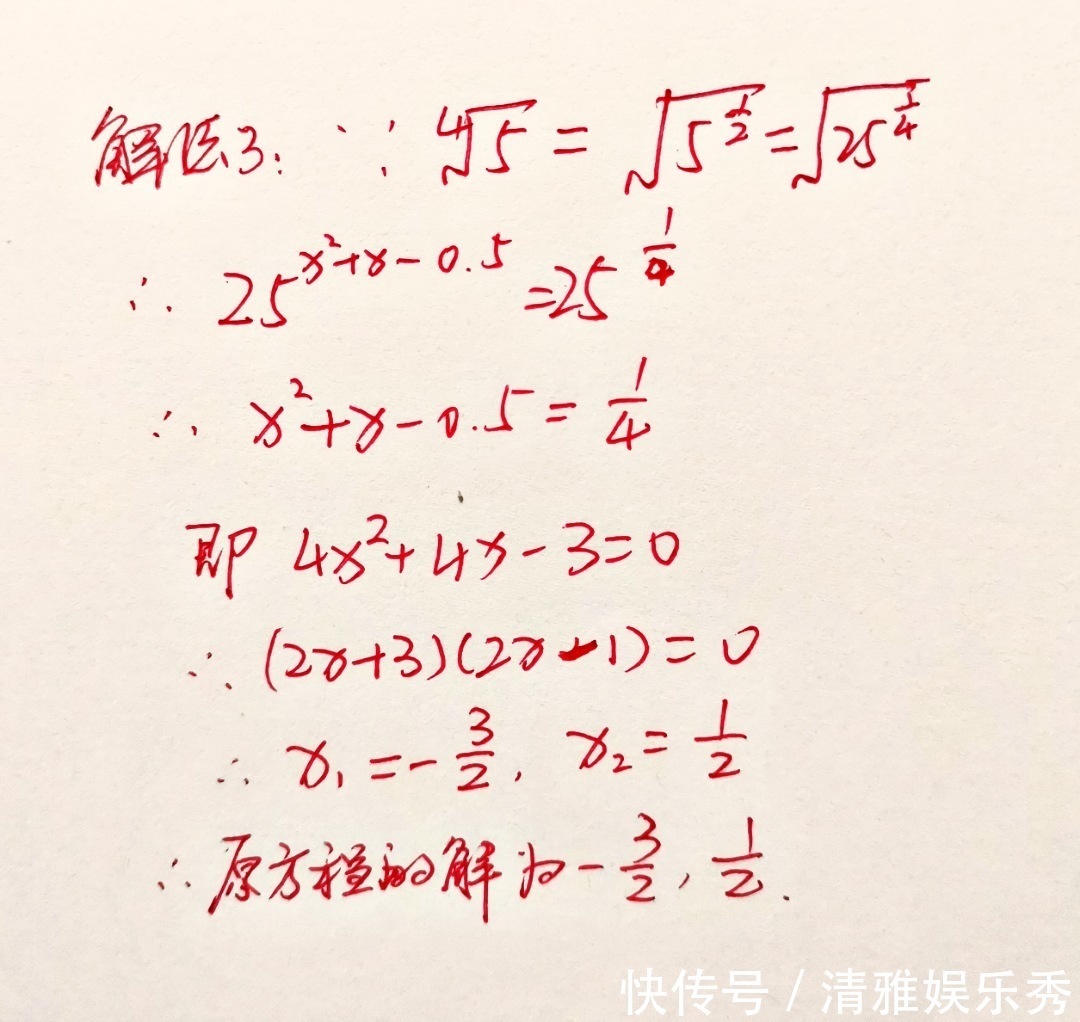 解法3: ∵ ∜5 = √(5^(1/2)) = √(25^(1/4))
∴ 25^(x²+x-0.5) = 25^(1/4)
∴ x²+x-0.5 = 1/4
即 4x²+4x-3=0
∴ (2x+3)(2x-1)=0
∴ x₁=-3/2, x₂=1/2
∴ 原方程的解为-3/2, 1/2.
快传号 / 清雅娱乐秀